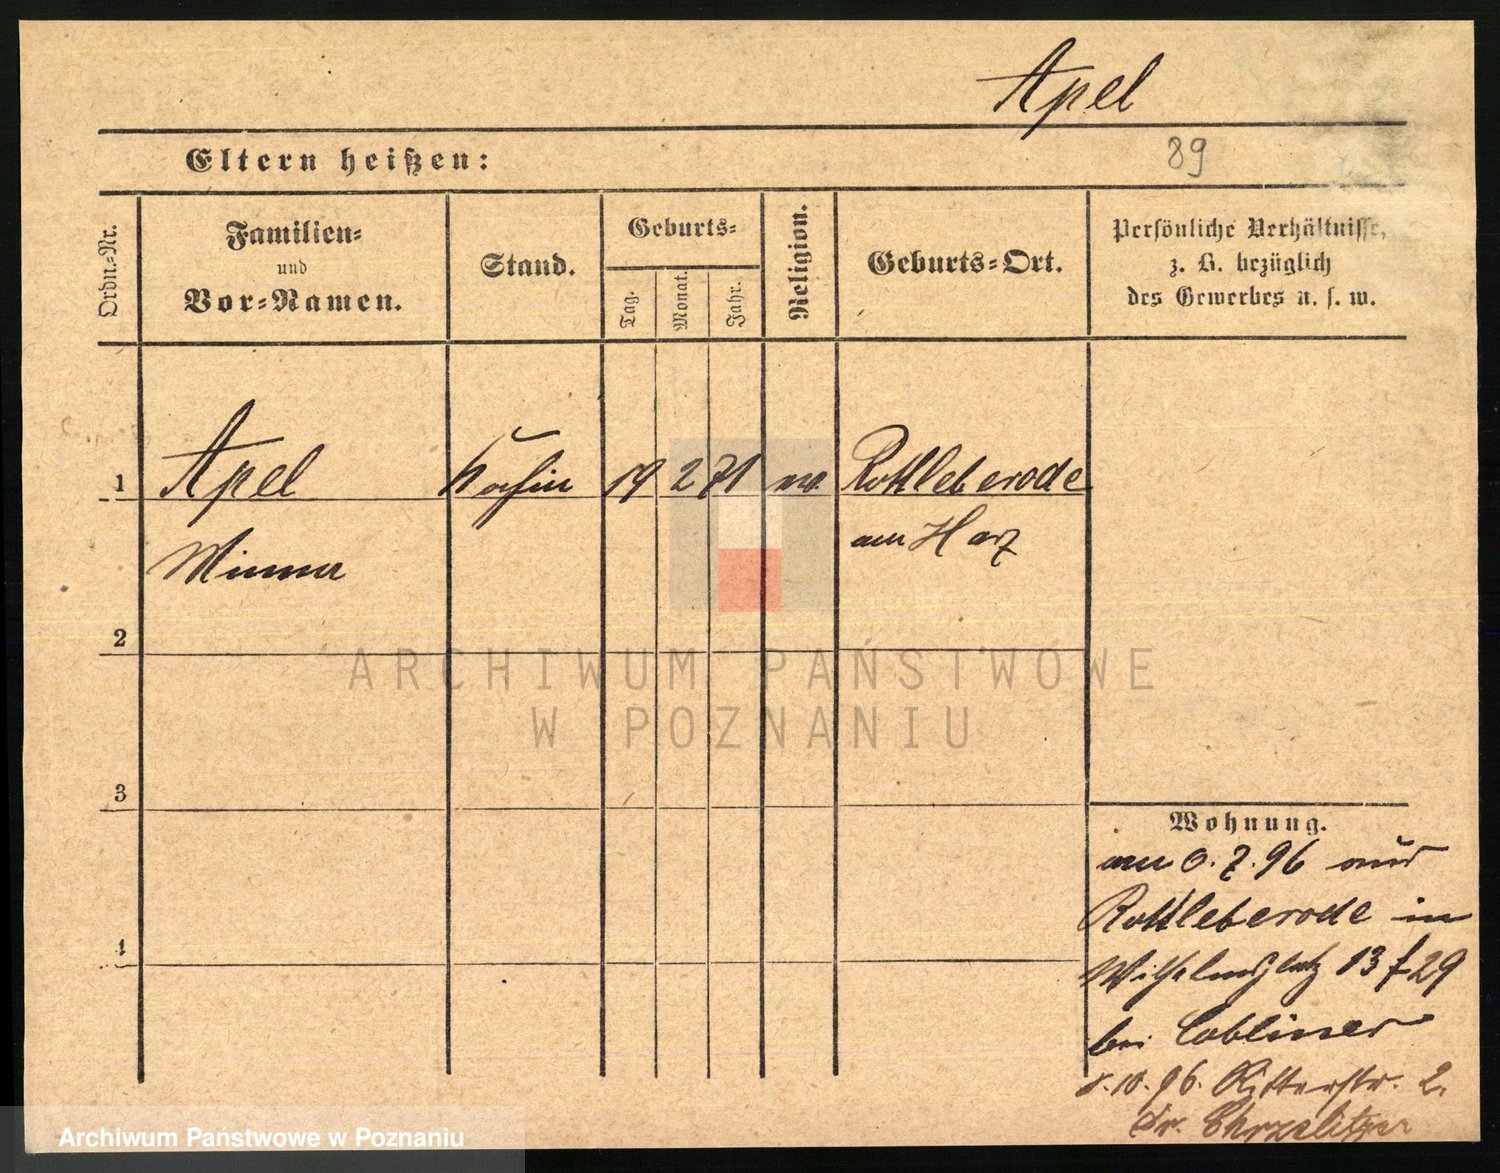 Apel
89
Eltern heißen:
Ordn.-Nr.
Familien-
und
Vor-Namen.
Stand.
Geburts-
Tag.
Monat.
Jahr.
Religion.
Geburts-Ort.
Persönliche Verhältnisse,
z. B. bezüglich
des Gewerbes u. s. w.
1
Apel Köchin 19 2 71 ev. Rottleberode
Minna am Harz
2
3
4
Wohnung.
.7.96 aus
Rottleberode in
Wilhelmsplatz 13 f 29
bei Cobliner
.10.96. Ritterstr. 2.
Dr. Chrzelitzer
ARCHIWUM PAŃSTWOWE
W POZNANIU
Archiwum Państwowe w Poznaniu